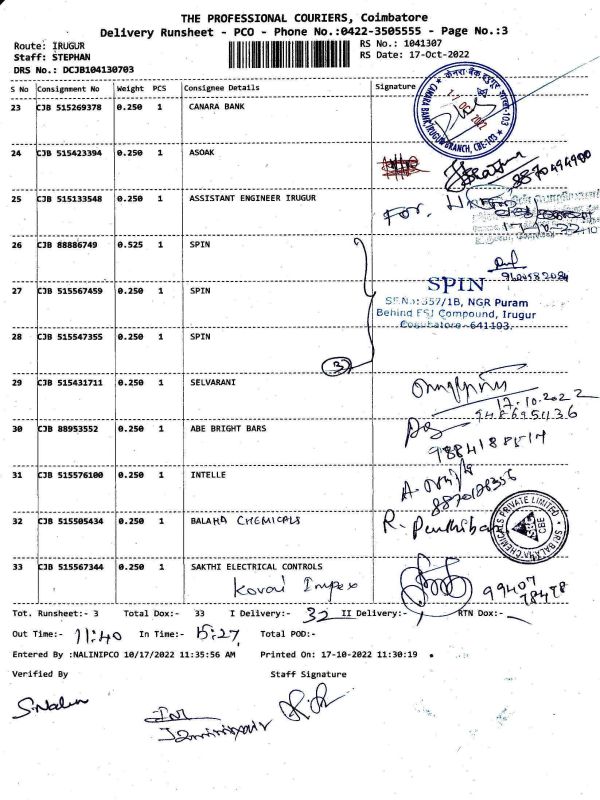 THE PROFESSIONAL COURIERS, Coimbatore
Delivery Runsheet - PCO - Phone No.:0422-3505555 - Page No.:3
Route: IRUGUR
RS No.: 1041307
Staff: STEPHAN
RS Date: 17-Oct-2022
DRS No.: DCJB104130703
S No Consignment No Weight PCS Consignee Details Signature
23 CJB 515269378 0.250 1 CANARA BANK
24 CJB 515423394 0.250 1 ASOAK
8870494900
25 CJB 515133548 0.250 1 ASSISTANT ENGINEER IRUGUR
FOR.
26 CJB 88886749 0.525 1 SPIN
27 CJB 515567459 0.250 1 SPIN
SPIN
SF.No:357/1B, NGR Puram
Behind FSJ Compound, Irugur
Coimbatore-641103.
28 CJB 515547355 0.250 1 SPIN
3
29 CJB 515431711 0.250 1 SELVARANI
17.10.2022
30 CJB 88953552 0.250 1 ABE BRIGHT BARS
31 CJB 515576100 0.250 1 INTELLE
32 CJB 515505434 0.250 1 BALAHA CHEMICALS
SRI BALAHA CHEMICALS PRIVATE LIMITED
CBE
33 CJB 515567344 0.250 1 SAKTHI ELECTRICAL CONTROLS
Kovai Impex
99407
78478
Tot. Runsheet:- 3 Total Dox:- 33 I Delivery:- 32 II Delivery:- RTN Dox:-
Out Time:- 11:40 In Time:- 15:27 Total POD:-
Entered By :NALINIPCO 10/17/2022 11:35:56 AM Printed On: 17-10-2022 11:30:19
Verified By Staff Signature
S.Nalini